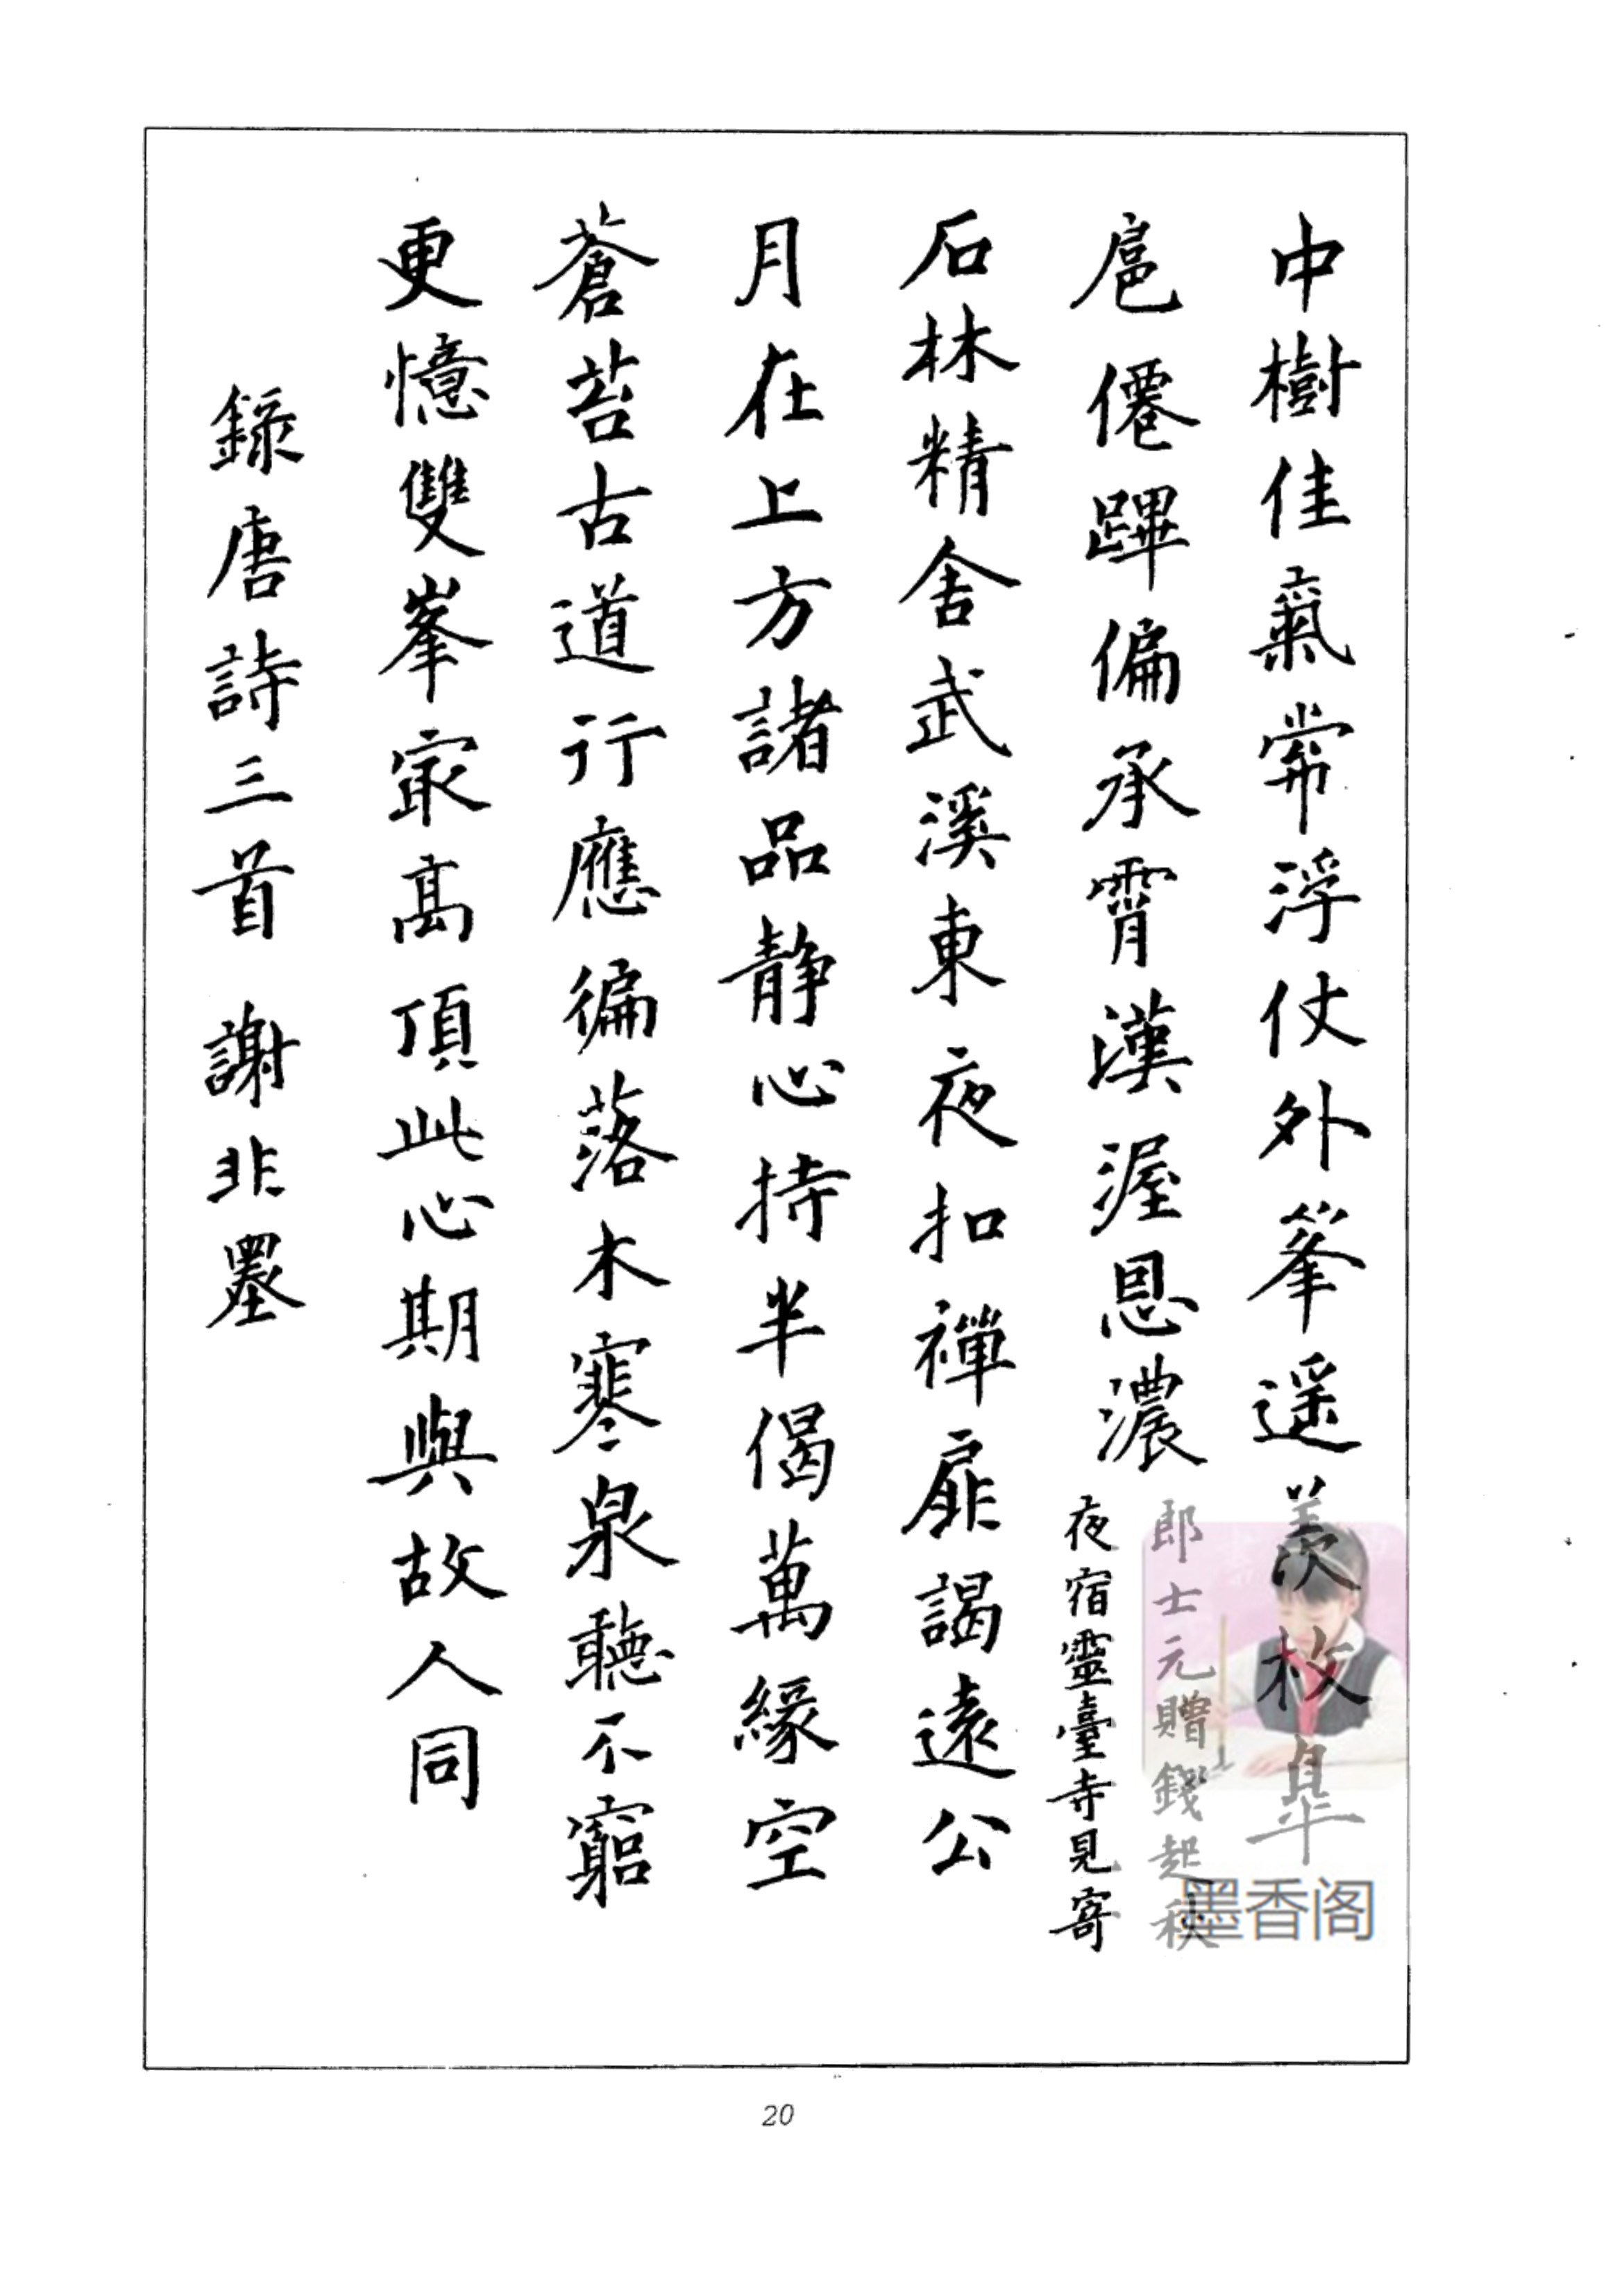 中樹佳氣常浮仗外峯遥羨枚皐
扈僊蹕偏承霄漢渥恩濃
郎士元贈錢起秋
夜宿靈臺寺見寄
石林精舍武溪東夜扣禪扉謁遠公
月在上方諸品静心持半偈萬緣空
蒼苔古道行應徧落木寒泉聽不窮
更憶雙峯冣高頂此心期與故人同
錄唐詩三首 謝非墨
墨香阁
20